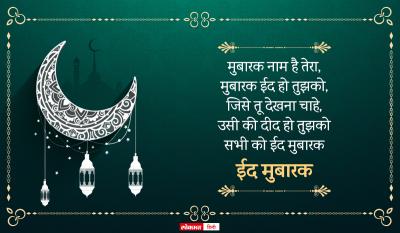 मुबारक नाम है तेरा,
मुबारक ईद हो तुझको,
जिसे तू देखना चाहे,
उसी की दीद हो तुझको
सभी को ईद मुबारक
ईद मुबारक
लोकमत हिन्दी